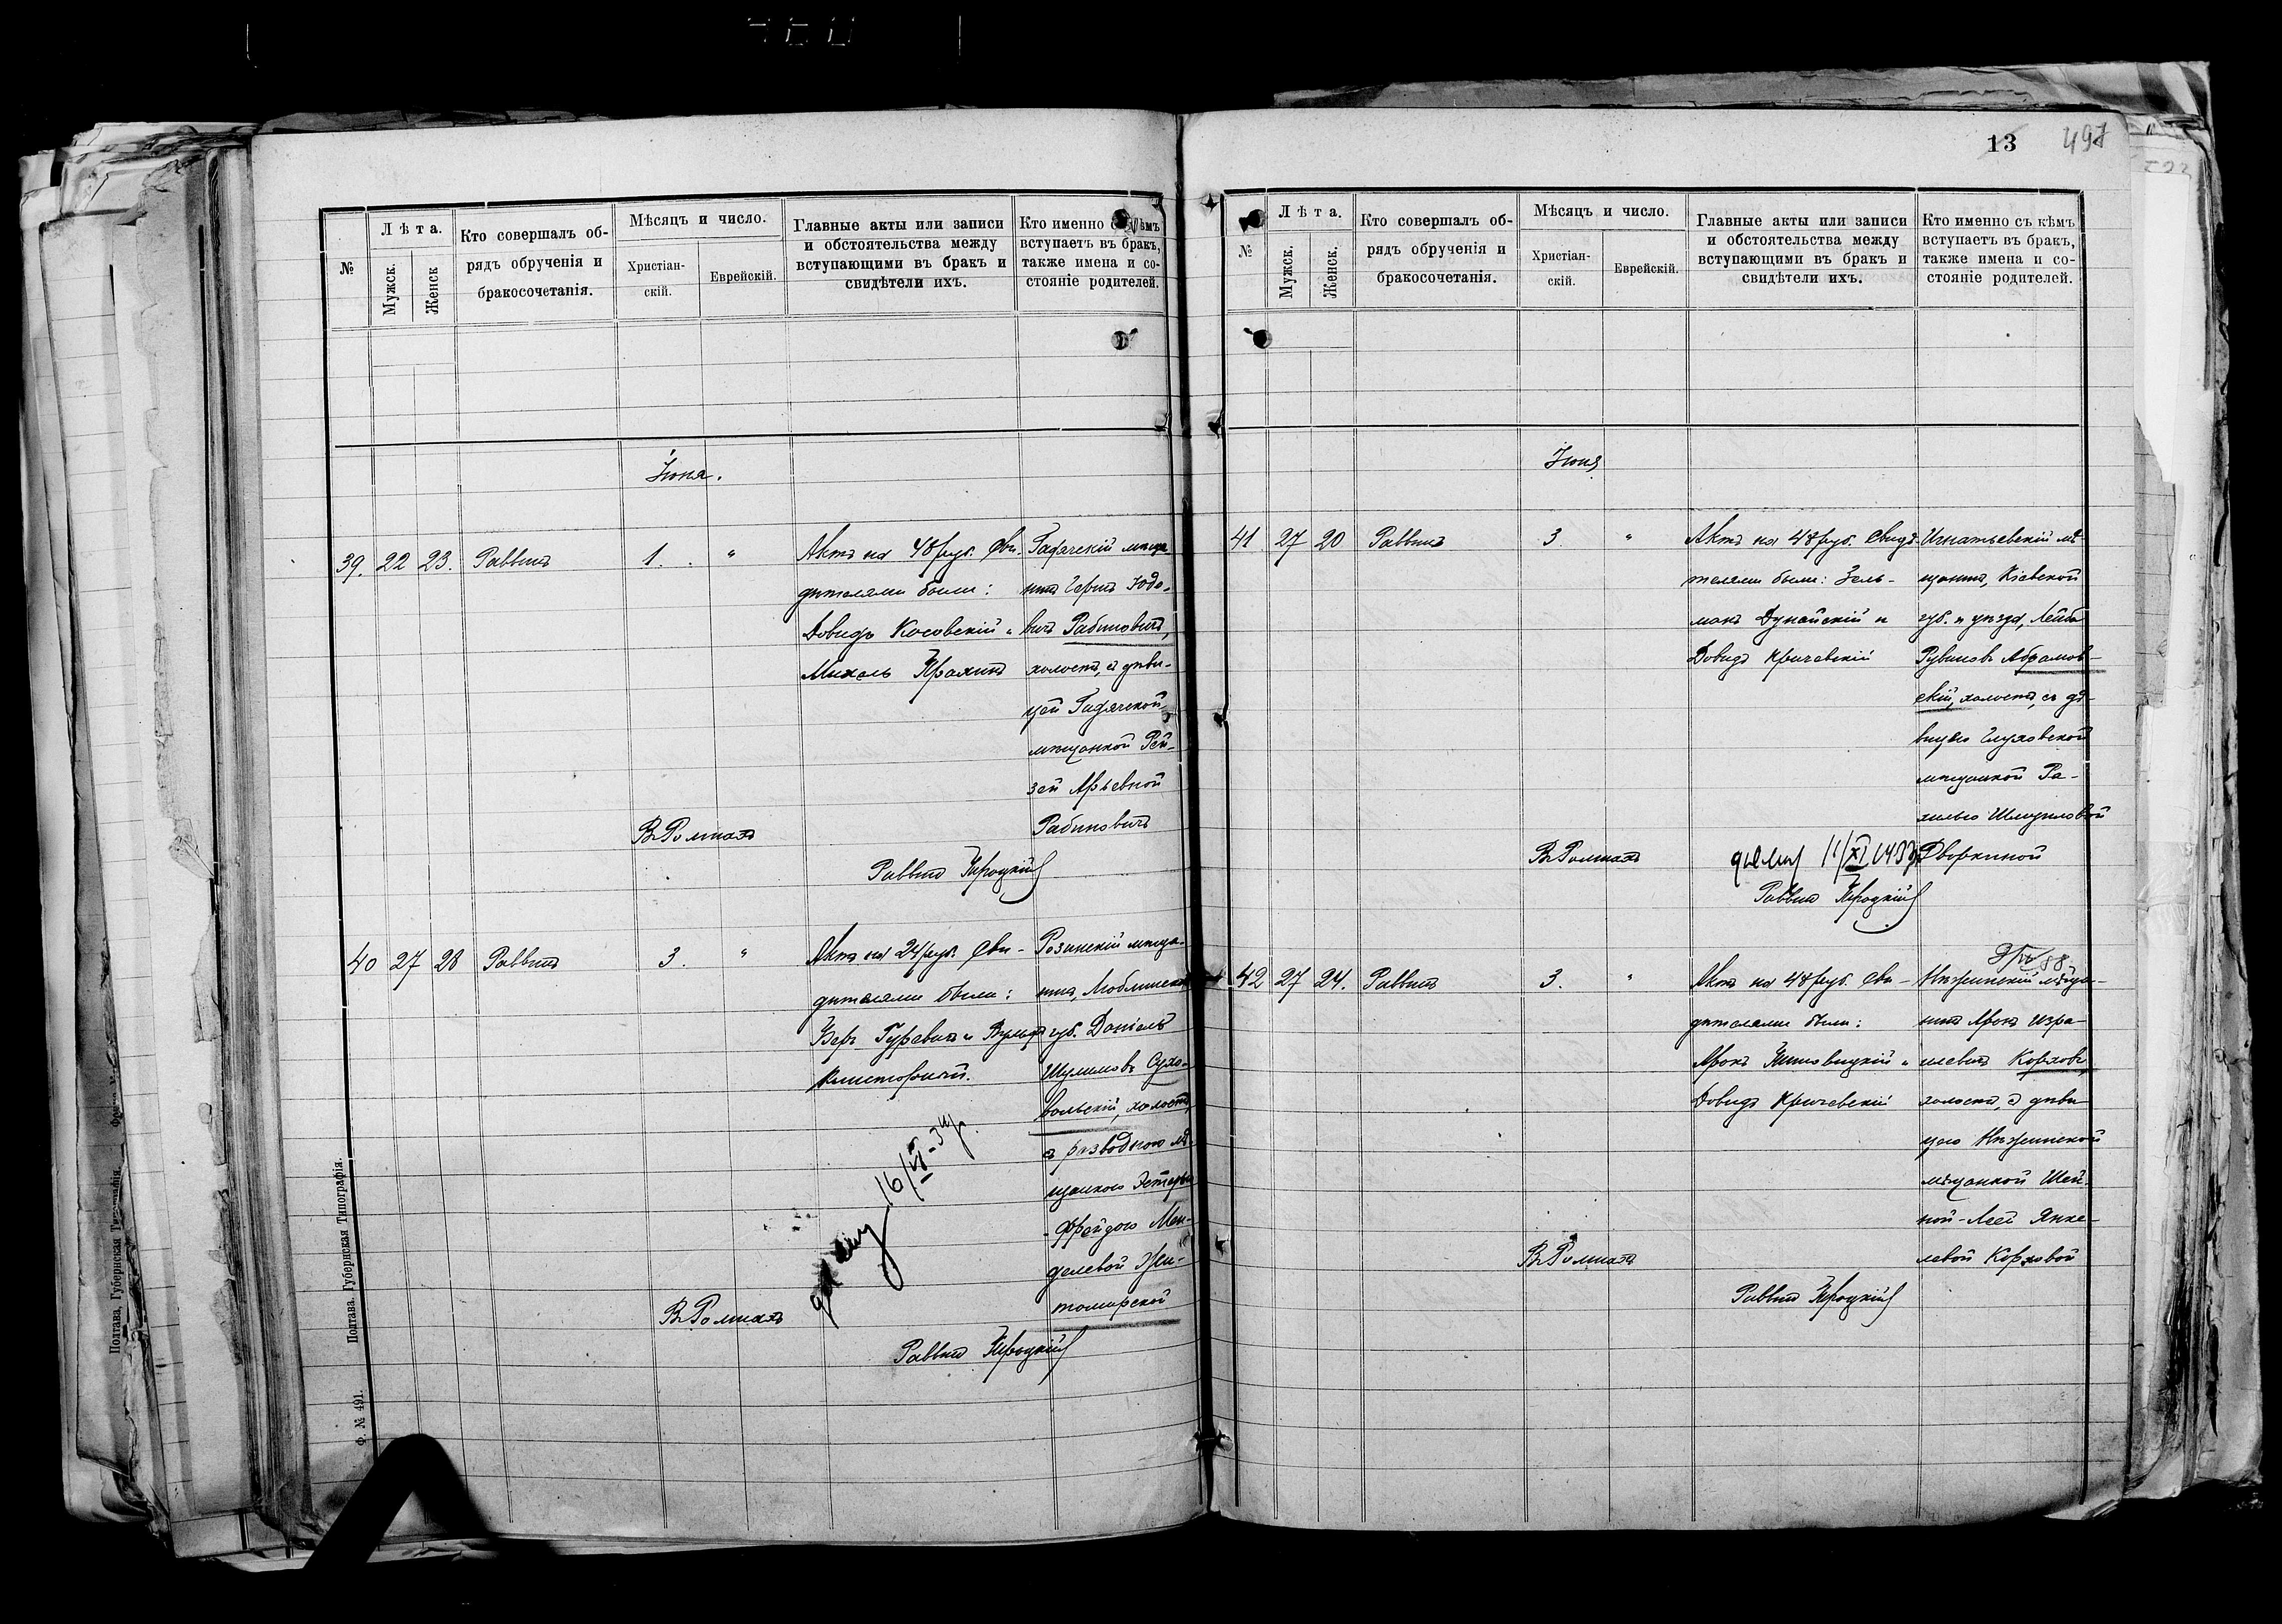 №
Лѣта.
Мужск.
Женск
Кто совершалъ об-
рядъ обрученія и
бракосочетанія.
Мѣсяцъ и число.
Христіан-
скій.
Еврейскій.
Главные акты или записи
и обстоятельства между
вступающими въ бракъ и
свидѣтели ихъ.
Кто именно съ кѣмъ
вступаетъ въ бракъ,
также имена и со-
стояніе родителей.
Іюня.
39. 22 23. Раввинъ 1. "
Актъ на 48 руб. Сви-
дѣтелями были:
Довидъ Косовскій и
Михель
Гадячскій мѣща-
нинъ Юде-
вичъ Рабиновичъ,
холостъ, съ дѣви-
цей Гадячской
мѣщанкой Рей-
зей Арьевной
Рабиновичъ
Въ Ромнахъ
Раввинъ
40 27 28 Раввинъ 3. "
Актъ на 24 руб. Сви-
дѣтелями были:
Беръ Гуревичъ и Вульфъ
мѣща-
нинъ, Люблинской
губ. Даніель
Шулимовъ Сухо-
вольскій, холостъ,
съ разводною мѣ-
щанкою Эстеръ
-Фрейдою Мен-
делевой Жи-
томирской
16/VI-34г.
Въ Ромнахъ
Раввинъ
Полтава. Губернская Типографія.
Ф. № 491.
Полтава, Губернская Типографія.
13
497
№
Лѣта.
Мужск.
Женск.
Кто совершалъ об-
рядъ обрученія и
бракосочетанія.
Мѣсяцъ и число.
Христіан-
скій.
Еврейскій.
Главные акты или записи
и обстоятельства между
вступающими въ бракъ и
свидѣтели ихъ.
Кто именно съ кѣмъ
вступаетъ въ бракъ,
также имена и со-
стояніе родителей.
Іюня
41 27 20 Раввинъ 3 "
Актъ на 48 руб. Свидѣ-
телями были: Зель-
манъ Дунайскій и
Довидъ Кричевскій
Игнатьевскій мѣ-
щанинъ, Кіевской
губ. и уѣзда, Лейба
Рувиновъ Абрамов-
скій, холостъ, съ дѣ-
вицею Глуховской
мѣщанкой Ра-
хилью Шмуиловой
Дворкиной
Въ Ромнахъ
Раввинъ
42 27 24. Раввинъ 3. "
Актъ на 48 руб. Сви-
дѣтелями были:
Аронъ и
Довидъ Кричевскій
Нѣжинскій мѣща-
нинъ Аронъ Изра-
илевичъ Корховъ,
холостъ, съ дѣви-
цею Нѣжинской
мѣщанкой Шей-
ной-Леей Янке-
левой Корховой
Въ Ромнахъ
Раввинъ